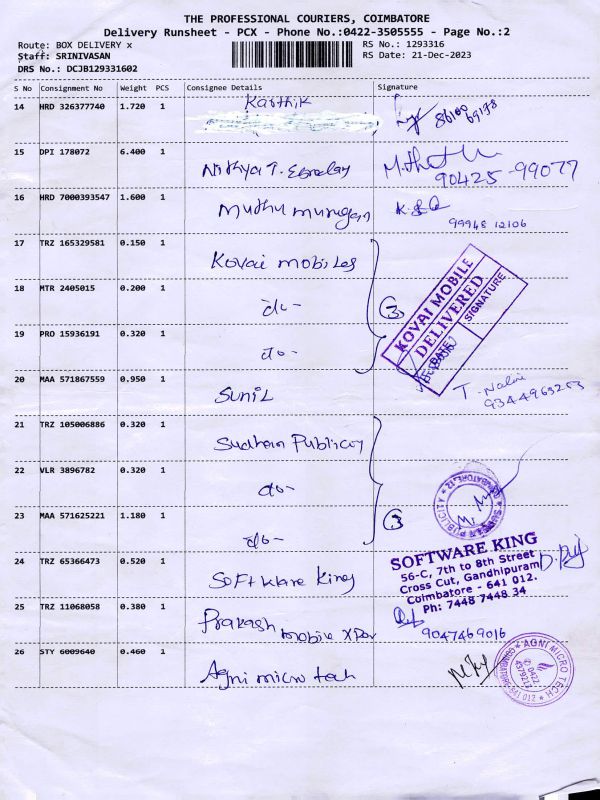 THE PROFESSIONAL COURIERS, COIMBATORE
Delivery Runsheet - PCX - Phone No.:0422-3505555 - Page No.:2
Route: BOX DELIVERY x
RS No.: 1293316
Staff: SRINIVASAN
RS Date: 21-Dec-2023
DRS No.: DCJB129331602
S No Consignment No Weight PCS Consignee Details Signature
14 HRD 326377740 1.720 1 Karthik
86100 69178
15 DPI 178072 6.400 1 Nithya T.
90425-99077
16 HRD 7000393547 1.600 1 Muthu murugan
99948 12106
17 TRZ 165329581 0.150 1 Kovai mobiles
18 MTR 2405015 0.200 1 do-
3
19 PRO 15936191 0.320 1 do-
KOVAI MOBILE
DELIVERED
DATE SIGNATURE
20 MAA 571867559 0.950 1 Sunil
T. Nalini
9344963253
21 TRZ 105006886 0.320 1 Sudhan Publicity
22 VLR 3896782 0.320 1 do-
23 MAA 571625221 1.180 1 do-
3
24 TRZ 65366473 0.520 1 Software King
SOFTWARE KING
56-C, 7th to 8th Street
Cross Cut, Gandhipuram
Coimbatore - 641 012.
Ph: 7448 7448 34
25 TRZ 11068058 0.380 1 Prakash mobile
9047469016
26 STY 6009640 0.460 1 Agni micro tech
AGNI MICRO TECH
COIMBATORE-641 012
0422
4379213